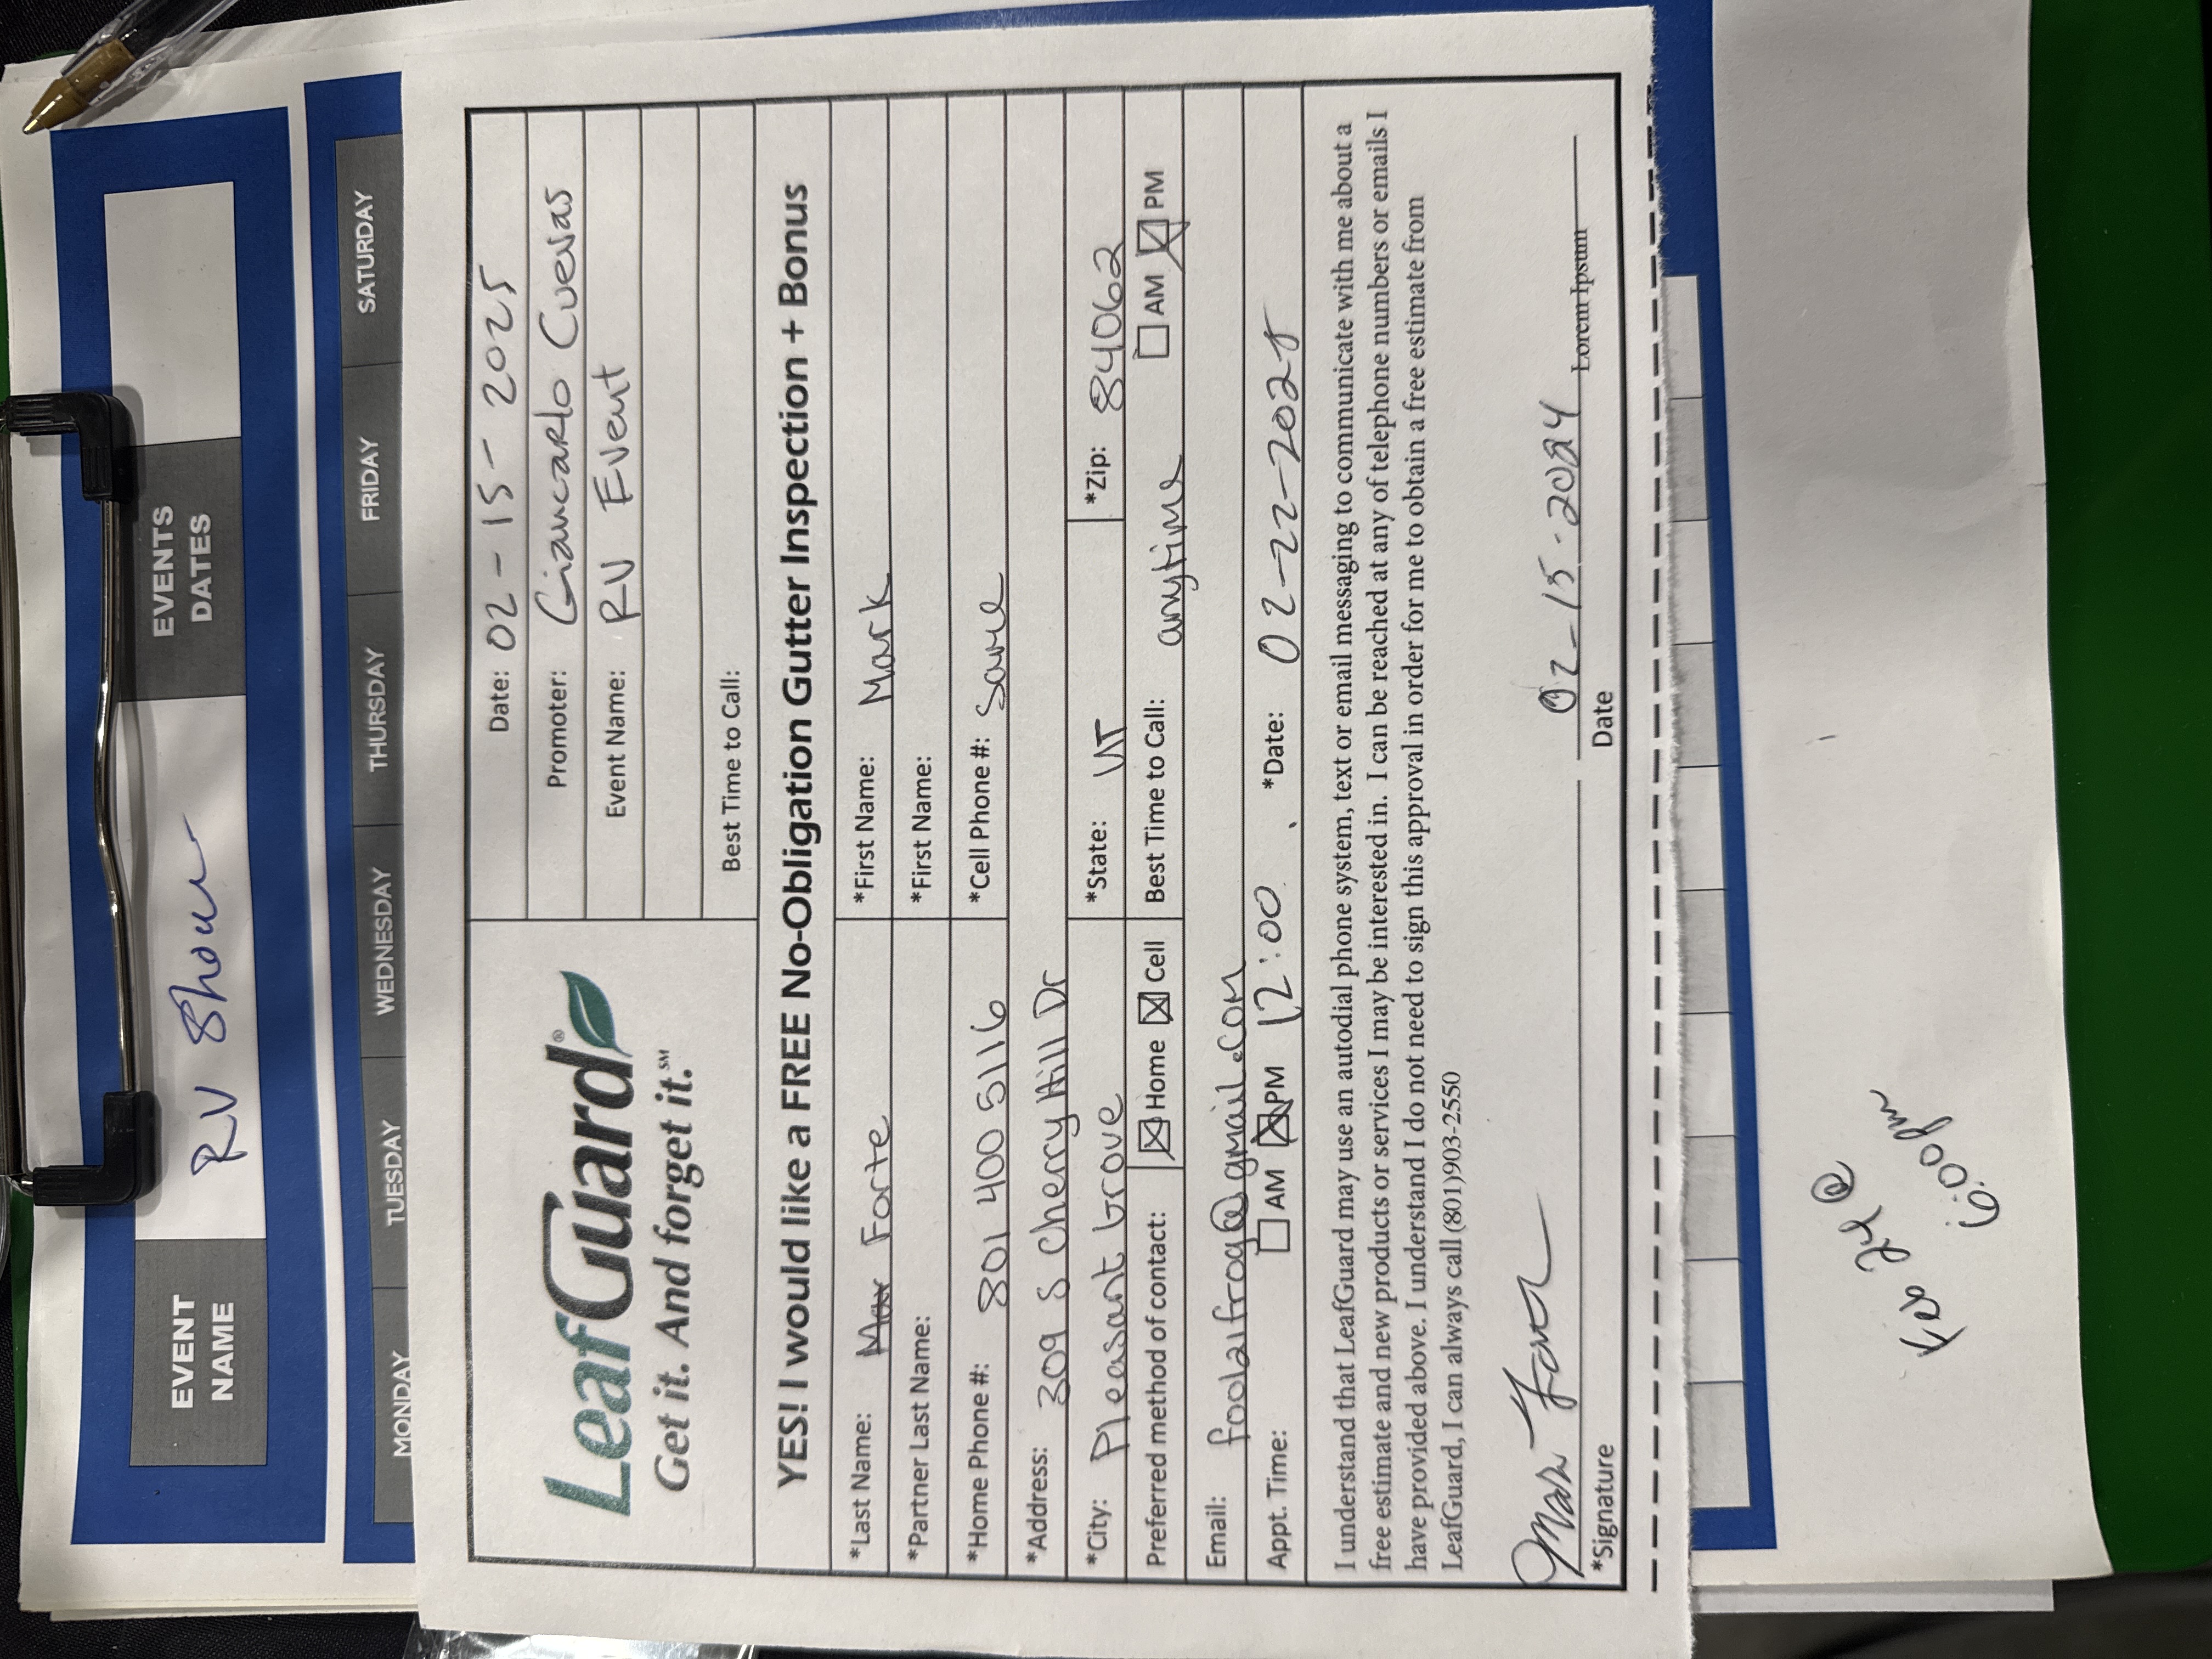 EVENT NAME
RV Show
EVENTS DATES
MONDAY TUESDAY WEDNESDAY THURSDAY FRIDAY SATURDAY
LeafGuard®
Get it. And forget it.℠
Date: 02-15-2025
Promoter: Giancarlo Cuevas
Event Name: RV Event
Best Time to Call:
YES! I would like a FREE No-Obligation Gutter Inspection + Bonus
*Last Name: Mar Forte *First Name: Mark
*Partner Last Name: *First Name:
*Home Phone #: 801 400 5116 *Cell Phone #: Same
*Address: 309 S Cherry Hill Dr
*City: Pleasant Grove *State: UT *Zip: 84062
Preferred method of contact: ☒ Home ☒ Cell Best Time to Call: anytime ☐ AM ☒ PM
Email: fool21frog@gmail.com
Appt. Time: ☐ AM ☒ PM 12:00 *Date: 02-22-2025
I understand that LeafGuard may use an autodial phone system, text or email messaging to communicate with me about a
free estimate and new products or services I may be interested in. I can be reached at any of telephone numbers or emails I
have provided above. I understand I do not need to sign this approval in order for me to obtain a free estimate from
LeafGuard, I can always call (801)903-2550
02-15-2024 Lorem Ipsum
*Signature Date
Feb 24 @
6:00pm